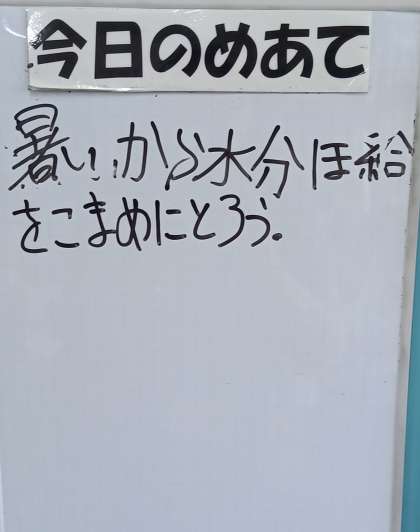 今日のめあて
暑いから水分ほ給
をこまめにとろう.